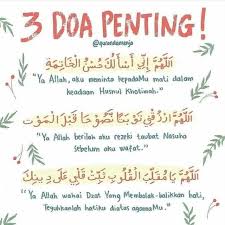 3 DOA PENTING!
@qurandamenja
اَللّٰهُمَّ إِنِّي أَسْأَلُكَ حُسْنَ الْخَاتِمَةِ
"Ya Allah, aku meminta kepadaMu mati dalam
keadaan Husnul Khotimah."
اَللّٰهُمَّ ارْزُقْنِي تَوْبَةً نَصُوْحًا قَبْلَ الْمَوْتِ
"Ya Allah berilah aku rezeki taubat Nasuha
sebelum aku wafat."
اَللّٰهُمَّ يَا مُقَلِّبَ الْقُلُوْبِ ثَبِّتْ قَلْبِي عَلَى دِيْنِكَ
"Ya Allah wahai Dzat Yang Membolak-balikkan hati,
Teguhkanlah hatiku diatas agamaMu."